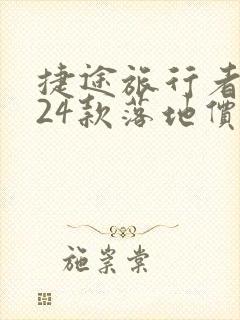 捷途旅行者
24款落地價
施崇棠